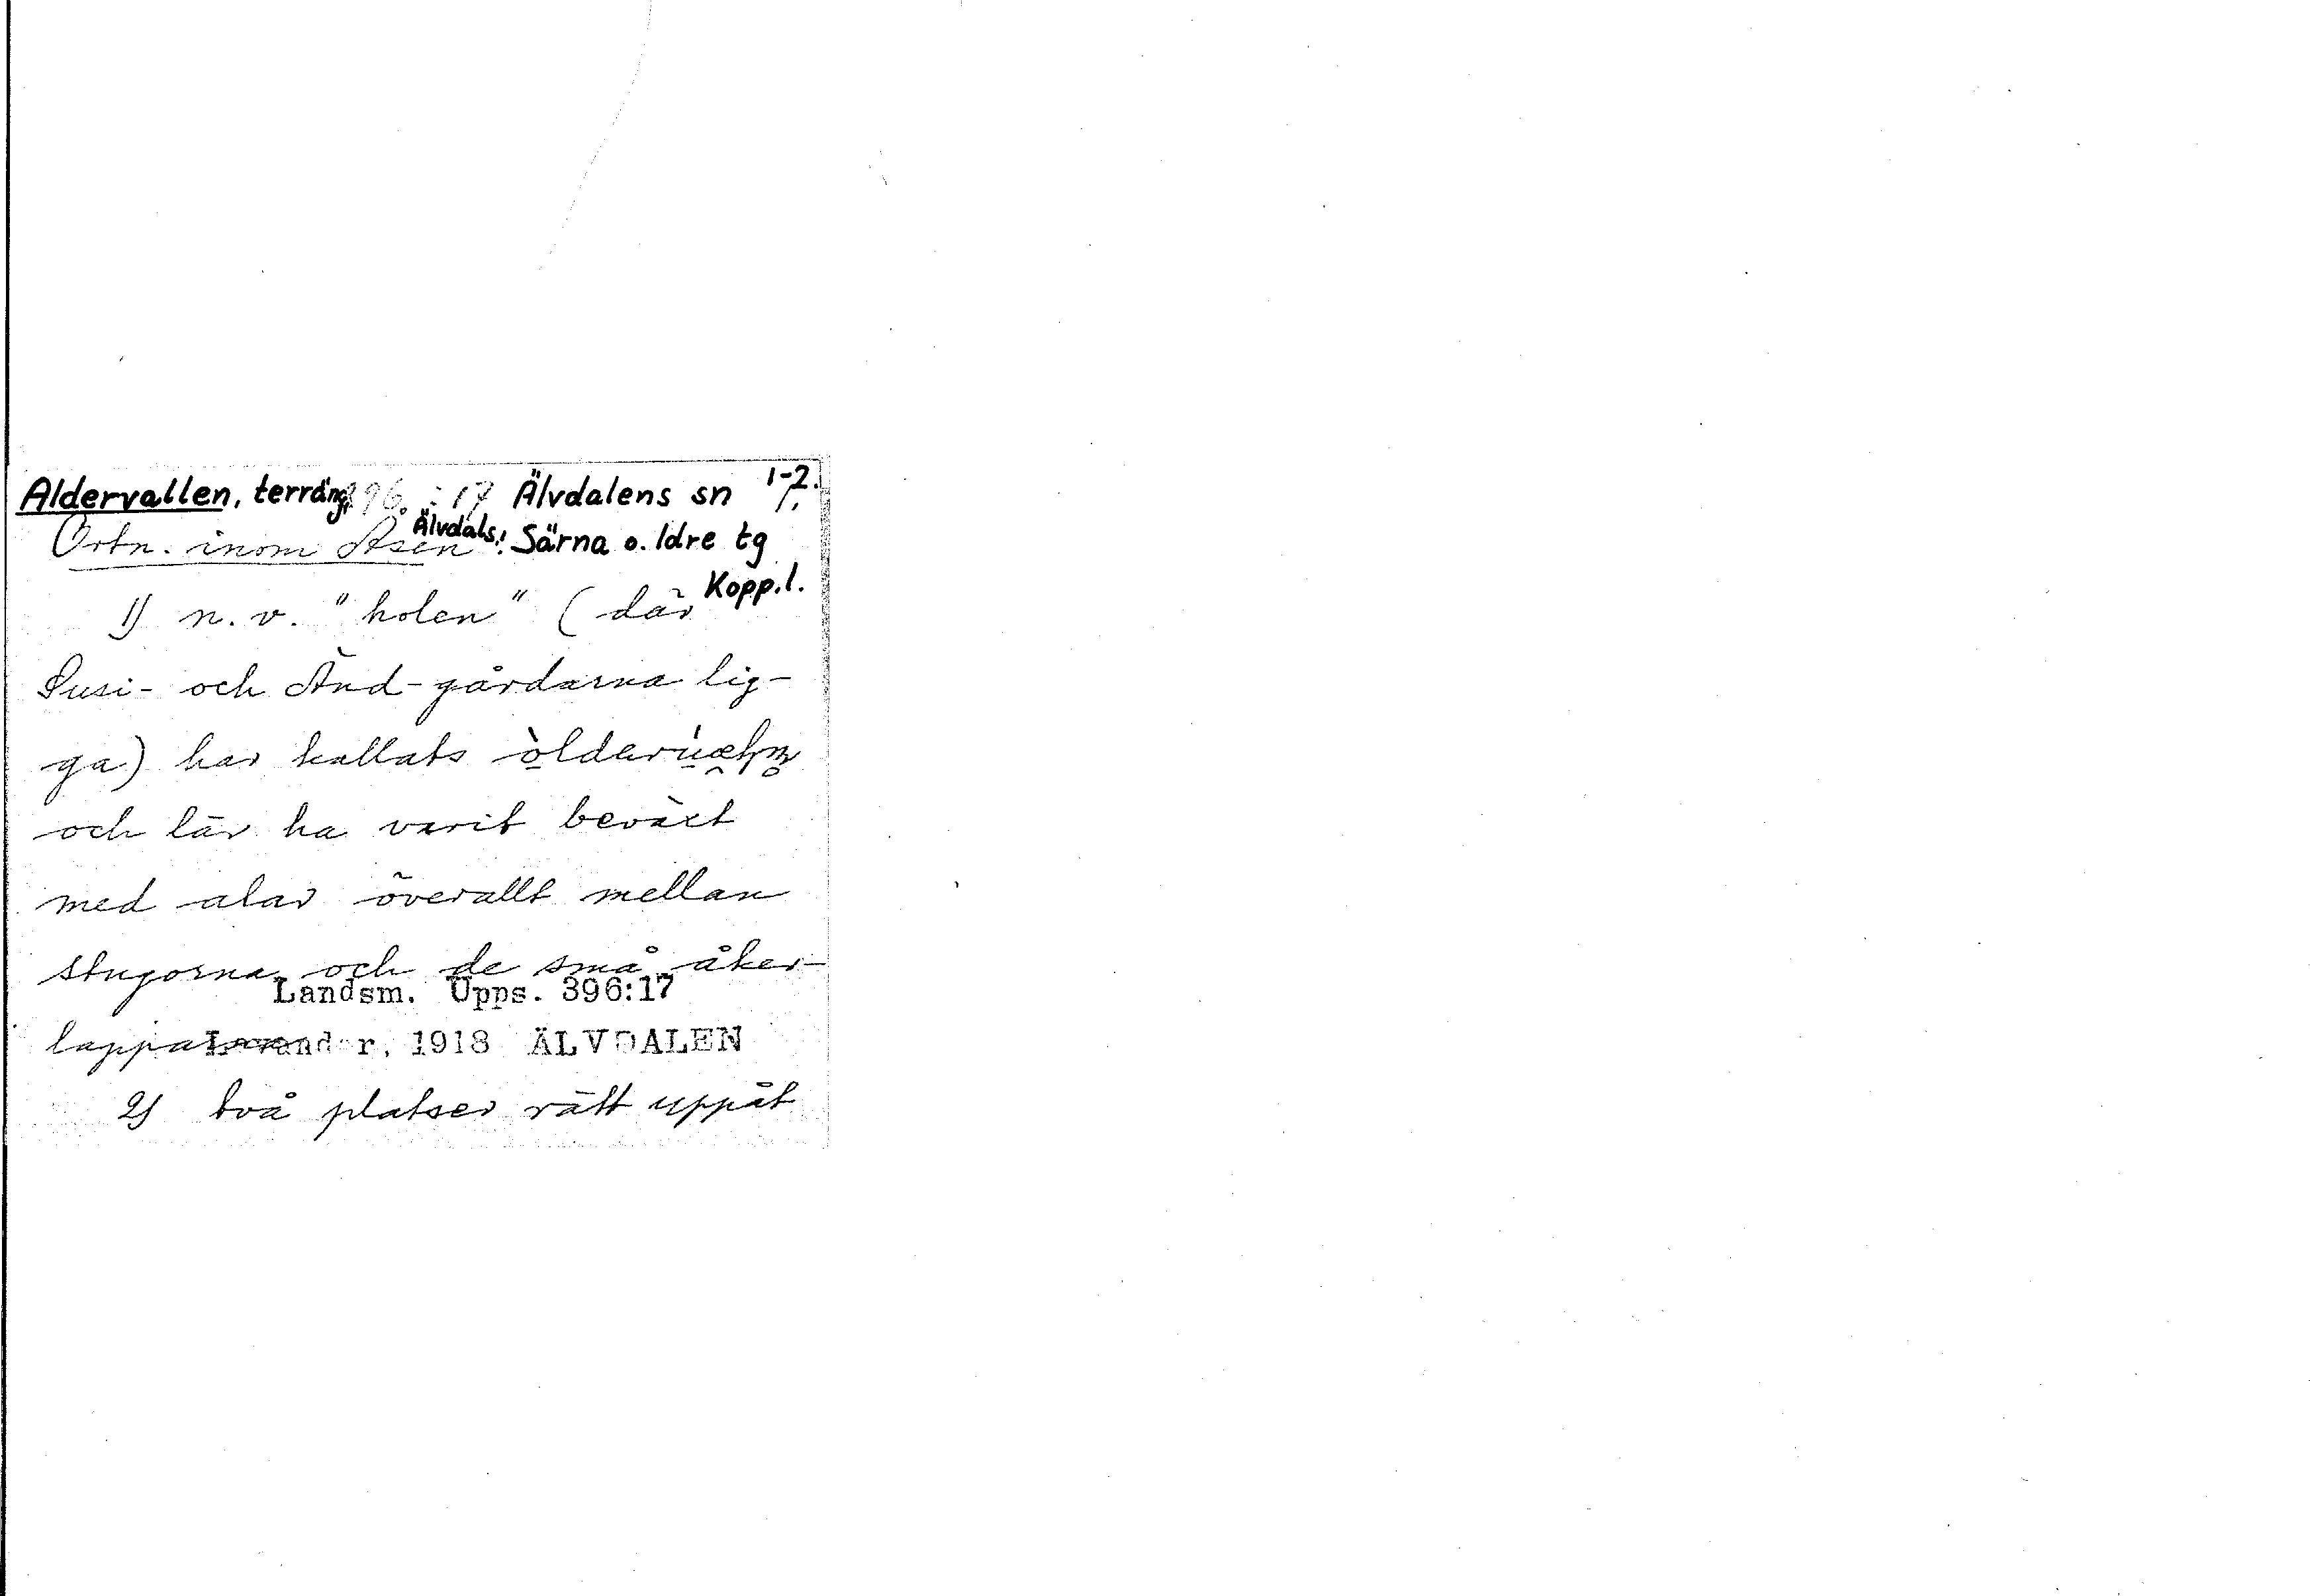 Aldervallen, terräng, 96:17 Älvdalens sn 1-2.
Ortn. inom Åsen Älvdals, Särna o. Idre tg
Kopp.l.
1) n. v. "holen" (där
Susi- och And-gårdarna lig-
ga) har kallats
och lär ha varit beväxt
med alar överallt mellan
stugorna och de små åker-
Landsm. Upps. 396:17
lapparna Levander, 1918 ÄLVDALEN
2) två platser rätt uppåt